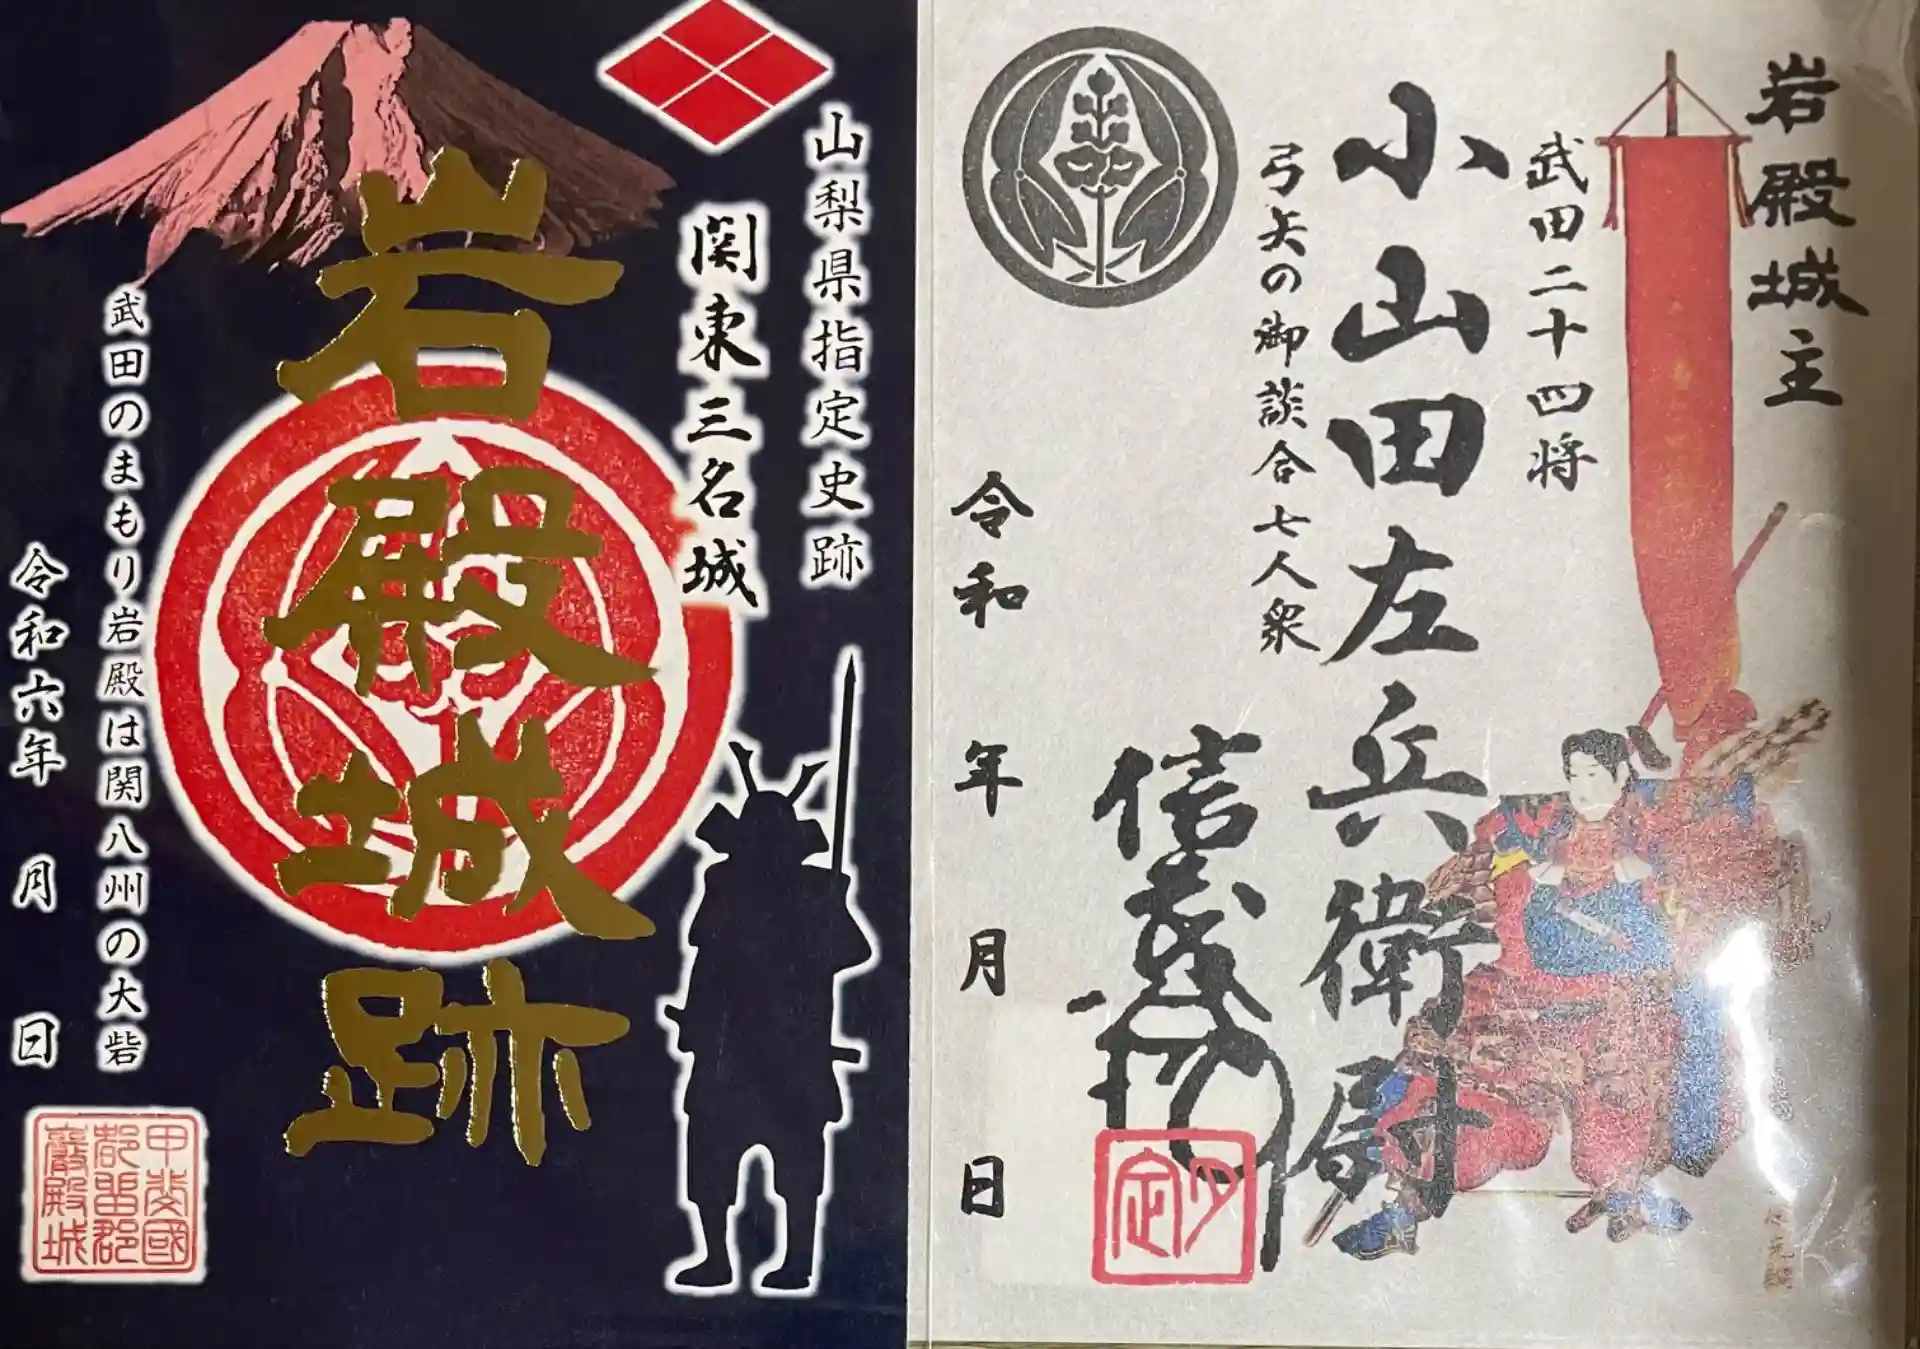 山梨県指定史跡
関東三名城
岩殿城跡
武田のまもり岩殿は関八州の大砦
令和六年 月 日
甲斐國
都留郡
巖殿城
岩殿城主
武田二十四将
小山田左兵衛尉
信茂
弓矢の御談合七人衆
令和 年 月 日